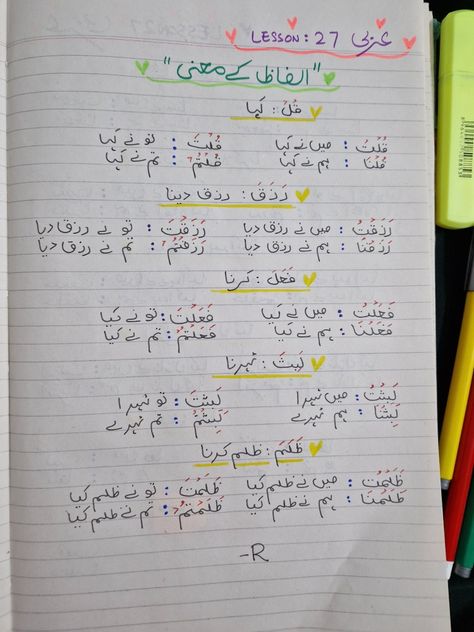 عربی LESSON: 27
"الفاظ کے معنی"
قُلْ: کہا
قُلْتُ: میں نے کہا قُلْتَ: تو نے کہا
قُلْنَا: ہم نے کہا قُلْتُمْ: تم نے کہا
رَزَقَ: رزق دینا
رَزَقْتُ: میں نے رزق دیا رَزَقْتَ: تو نے رزق دیا
رَزَقْنَا: ہم نے رزق دیا رَزَقْتُمْ: تم نے رزق دیا
فَعَلَ: کرنا
فَعَلْتُ: میں نے کیا فَعَلْتَ: تو نے کیا
فَعَلْنَا: ہم نے کیا فَعَلْتُمْ: تم نے کیا
لَبِثَ: ٹہرنا
لَبِثْتُ: میں ٹہرا لَبِثْتَ: تو ٹہرا
لَبِثْنَا: ہم ٹہرے لَبِثْتُمْ: تم ٹہرے
ظَلَمَ: ظلم کرنا
ظَلَمْتُ: میں نے ظلم کیا ظَلَمْتَ: تو نے ظلم کیا
ظَلَمْنَا: ہم نے ظلم کیا ظَلَمْتُمْ: تم نے ظلم کیا
-R